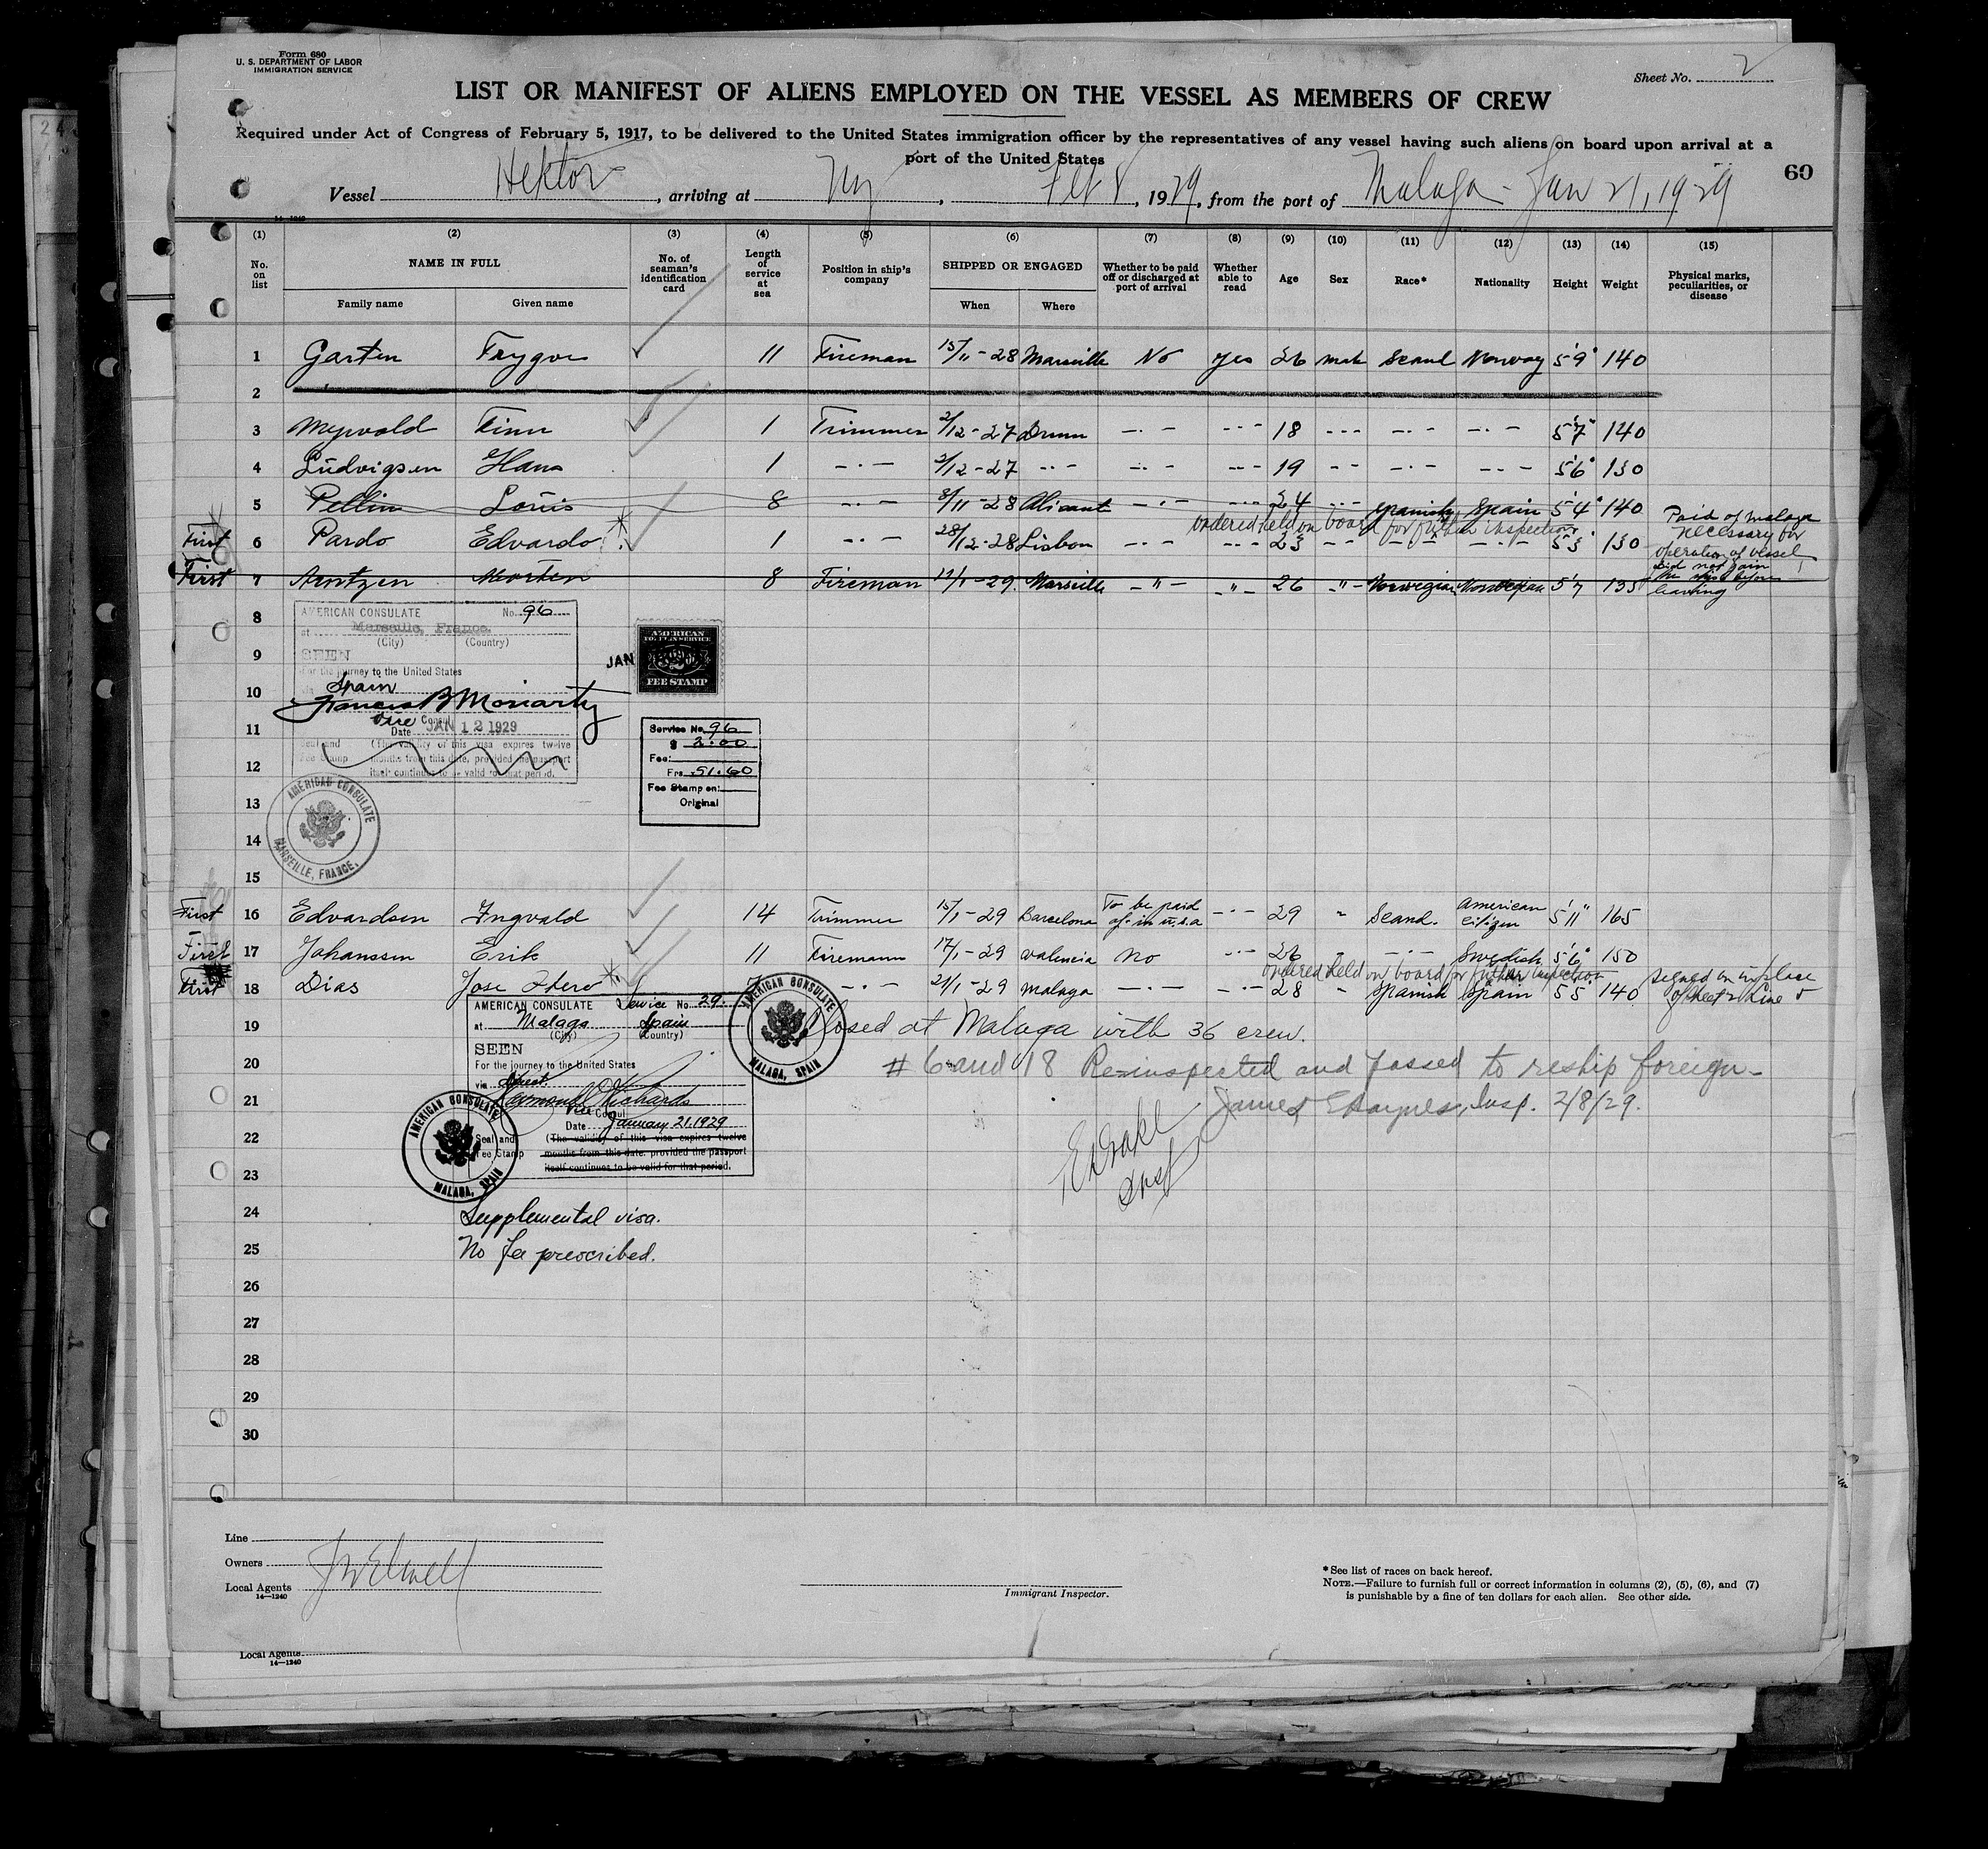 Form 680
U. S. DEPARTMENT OF LABOR
IMMIGRATION SERVICE
Sheet No. 2
LIST OR MANIFEST OF ALIENS EMPLOYED ON THE VESSEL AS MEMBERS OF CREW
Required under Act of Congress of February 5, 1917, to be delivered to the United States immigration officer by the representatives of any vessel having such aliens on board upon arrival at a
port of the United States
60
Vessel Hektor, arriving at Ny, Feb 8, 1929, from the port of Malaga - Jan 21, 1929
14-1240
(1) (2) (3) (4) (5) (6) (7) (8) (9) (10) (11) (12) (13) (14) (15)
No. on list NAME IN FULL No. of seaman's identification card Length of service at sea Position in ship's company SHIPPED OR ENGAGED Whether to be paid off or discharged at port of arrival Whether able to read Age Sex Race* Nationality Height Weight Physical marks, peculiarities, or disease
Family name Given name When Where
1 Garten Trygve 11 Fireman 15/11-28 Marseille No yes 26 male Scand Norway 5'9" 140
2
3 Mejwold Finn 1 Trimmer 2/12-27 Dram -·- -·- 18 -·- -·- -·- 5'7" 140
4 Ludvigsen Hans 1 -·- 2/12-27 -·- -·- -·- 19 -·- -·- -·- 5'6" 130
5 Pellin Louis 8 -·- 8/11-28 Alicant -·- -·- 24 -·- Spanish Spain 5'4" 140 Paid of Malaga
ordered held on board for further inspection
First 6 Pardo Edvardo * 1 -·- 28/12-28 Lisbon -·- -·- 23 -·- -·- -·- 5'3" 130 necessary for
operation of vessel
First 7 Arntzen Morten 8 Fireman 12/1-29. Marseille -"- -"- 26 -"- Norwegian Norwegian 5'7 135 Did not join
the ship before
leaving
8
AMERICAN CONSULATE No. 96
at Marseille, France.
(City) (Country)
9
SEEN
For the journey to the United States
JAN
AMERICAN
FEE STAMP
10
Spain
Francis B Moriarty
Vice Consul
11
Date JAN 12 1929
Seal and Fee Stamp (The validity of this visa expires twelve
months from this date, provided the passport
itself continues to be valid for that period.
Service No. 96
$ 2.00
Fee:
Frs. 51.60
Fee Stamp on:
Original
12
13
AMERICAN CONSULATE
MARSEILLE, FRANCE.
14
15
First 16 Edvardsen Ingvald 14 Trimmer 15/1-29 Barcelona To be paid of in U.S.A -·- 29 " Scand. American citizen 5'11" 165
First 17 Johanssen Erik 11 Firemann 17/1-29 Valencia No -·- 26 " -·- Swedish 5'6" 150
ordered held on board for further inspection
First 18 Dias Jose * 7 -·- 21/1-29 Malaga -·- -·- 28 " Spanish Spain 5'5" 140 Signed on in place
of sheet 2 Line 5
AMERICAN CONSULATE Service No. 29.
at Malaga Spain
(City) (Country)
SEEN
For the journey to the United States
via direct
Raymond Richards
Vice Consul
Date January 21. 1929
Seal and Fee Stamp (The validity of this visa expires twelve
months from this date, provided the passport
itself continues to be valid for that period.
AMERICAN CONSULATE
MALAGA, SPAIN
AMERICAN CONSULATE
MALAGA, SPAIN
19 Closed at Malaga with 36 crew.
20 # 6 and 18 Re-inspected and passed to reship foreign -
21 James E Haynes, Insp. 2/8/29.
22
E Drake
Insp
23
24 Supplemental visa.
25 No fee prescribed.
26
27
28
29
30
Line
Owners
Local Agents JW Elwell
14-1240
Immigrant Inspector.
* See list of races on back hereof.
NOTE.—Failure to furnish full or correct information in columns (2), (5), (6), and (7)
is punishable by a fine of ten dollars for each alien. See other side.
Local Agents
14-1240